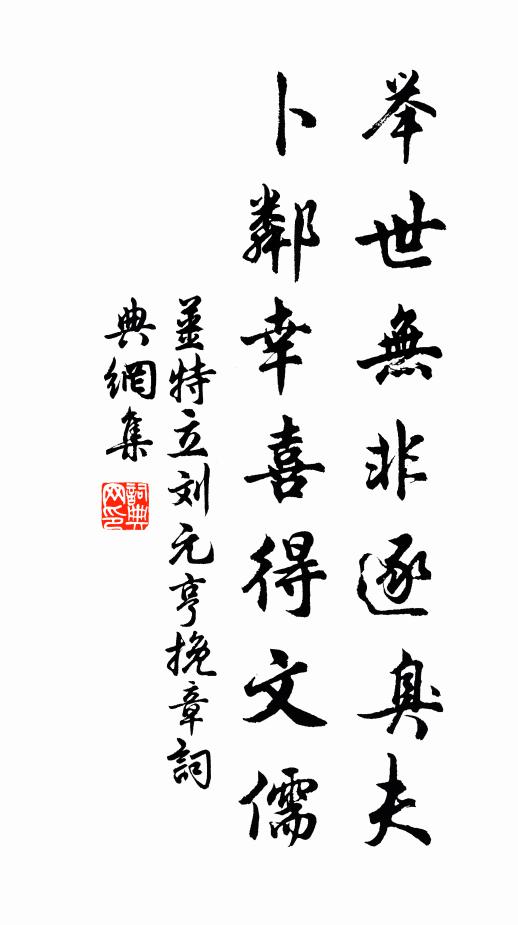 举世無非逐臭夫
卜鄰幸喜得文儒
姜特立刘元亨挽章詞
典網集
詞典网印